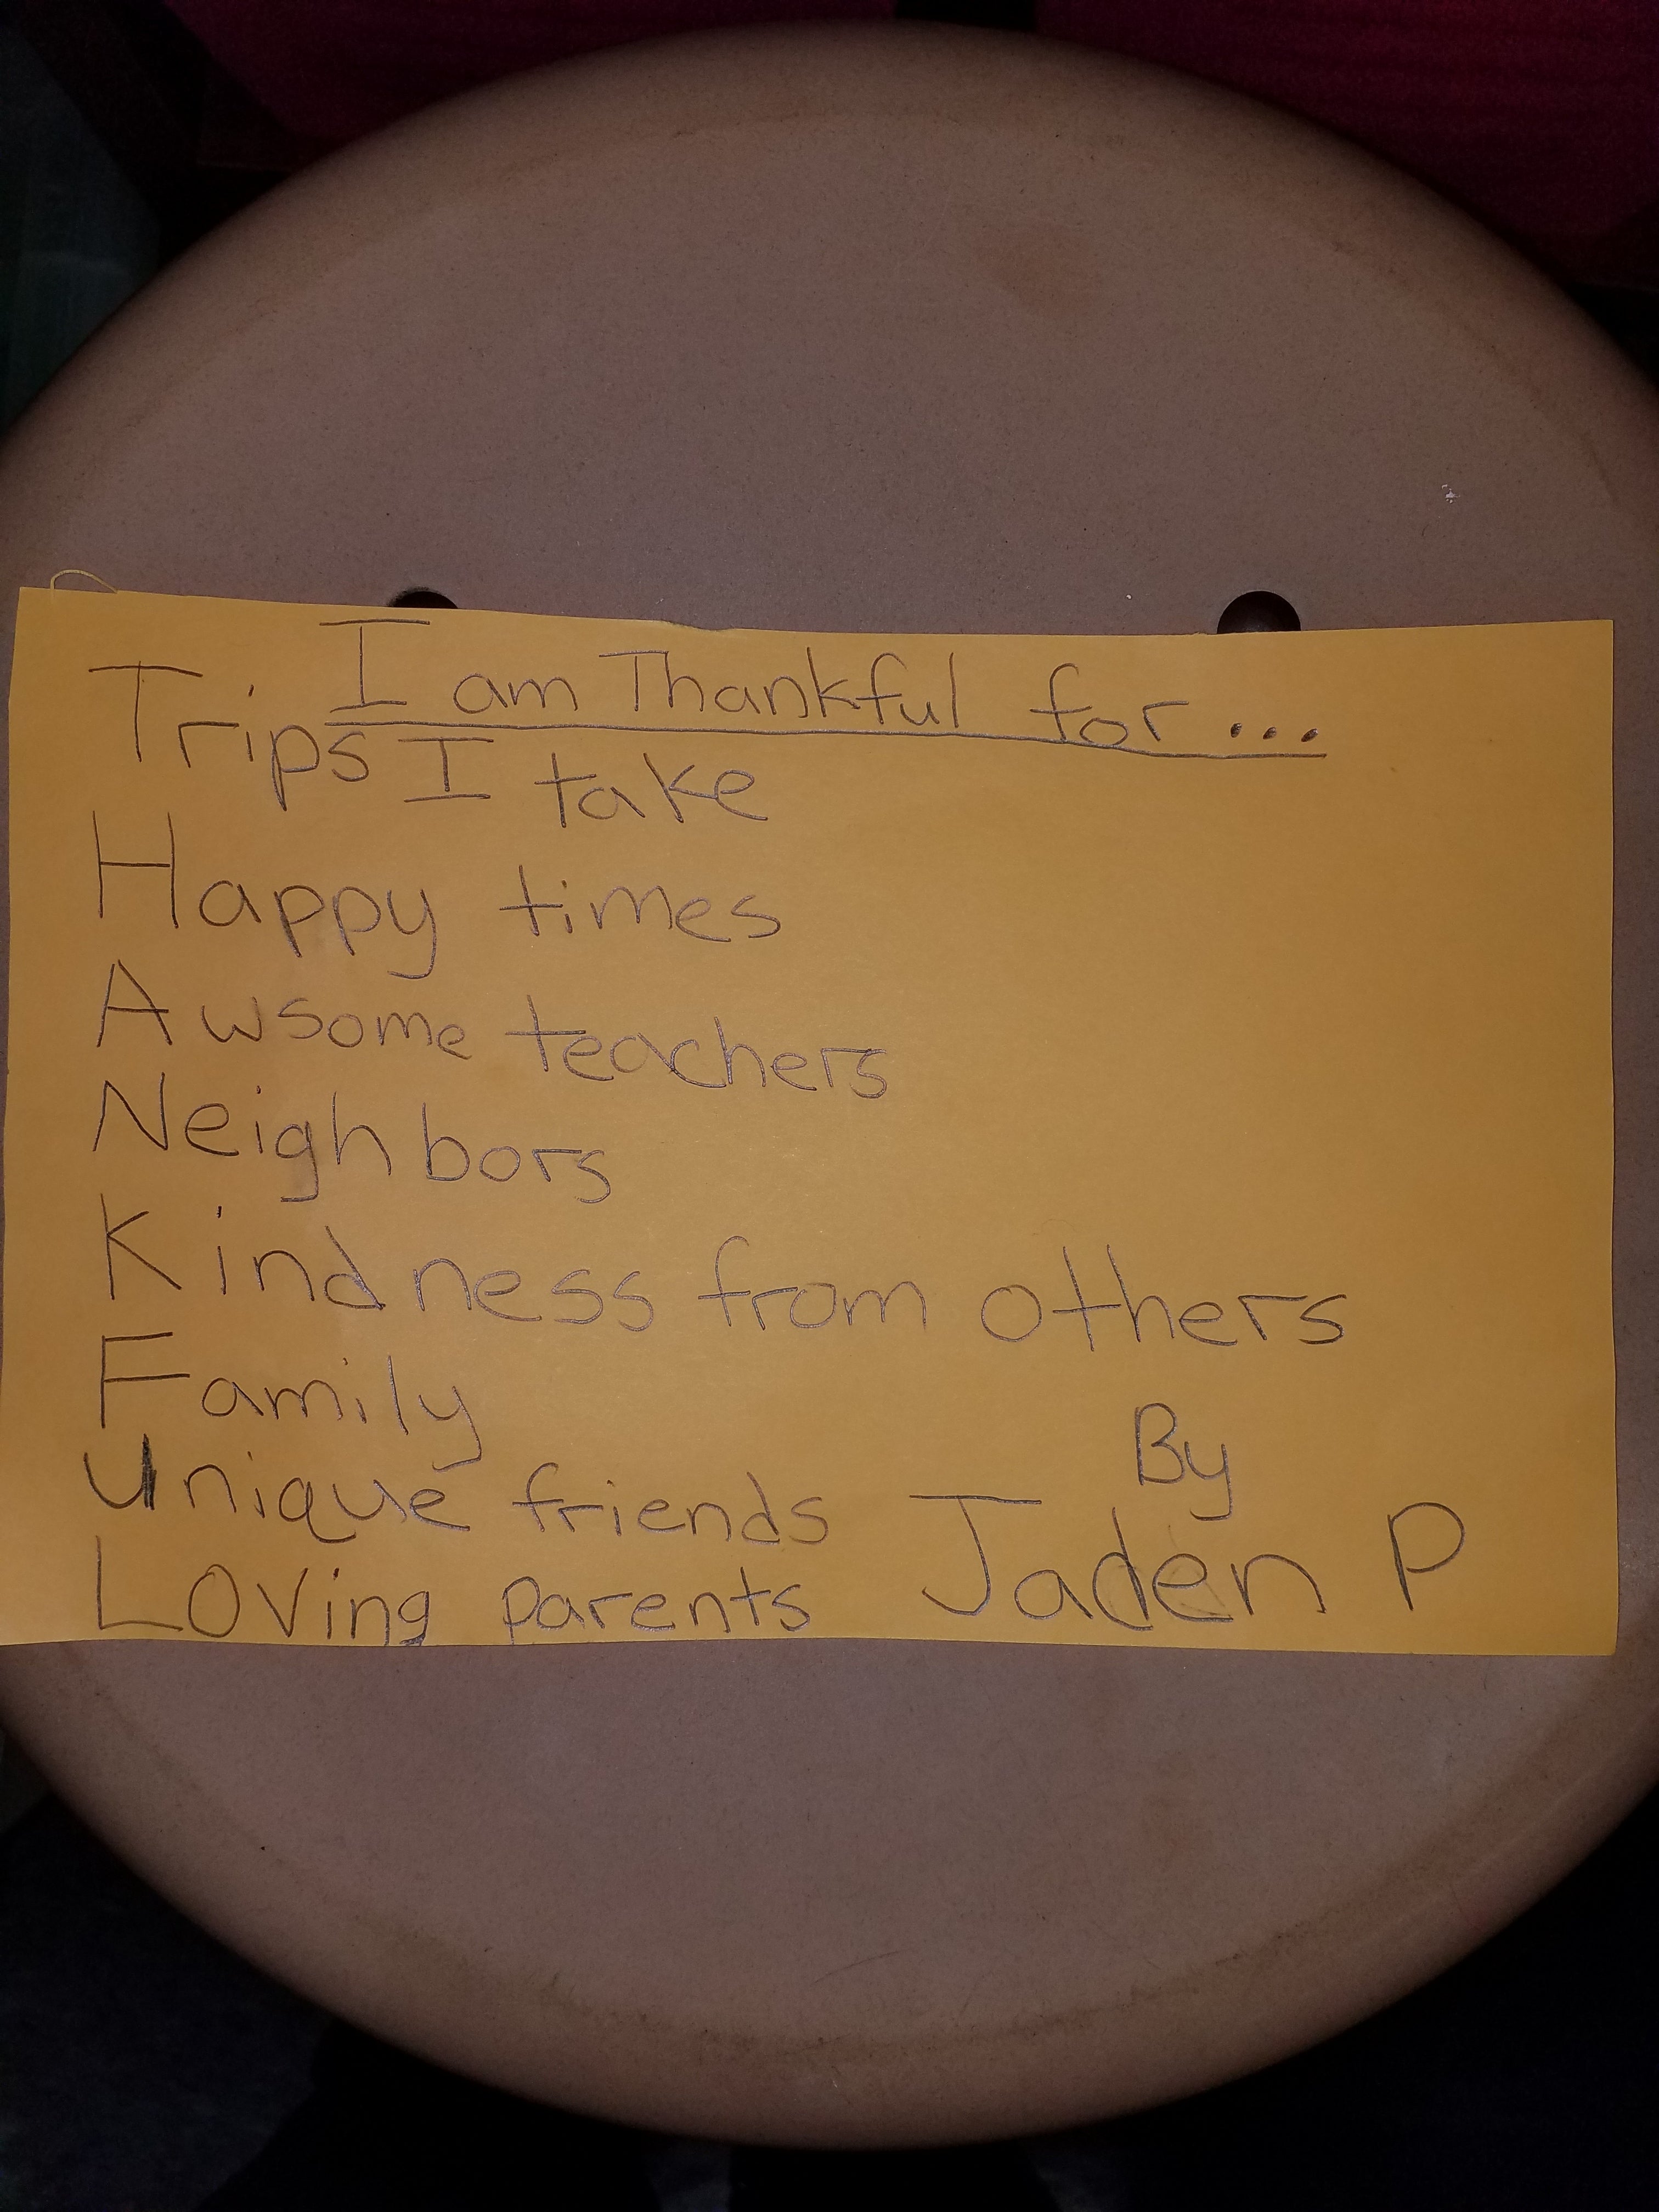 I am Thankful for...
Trips I take
Happy times
Awsome teachers
Neighbors
Kindness from others
Family
Unique friends
Loving parents
By
Jaden P